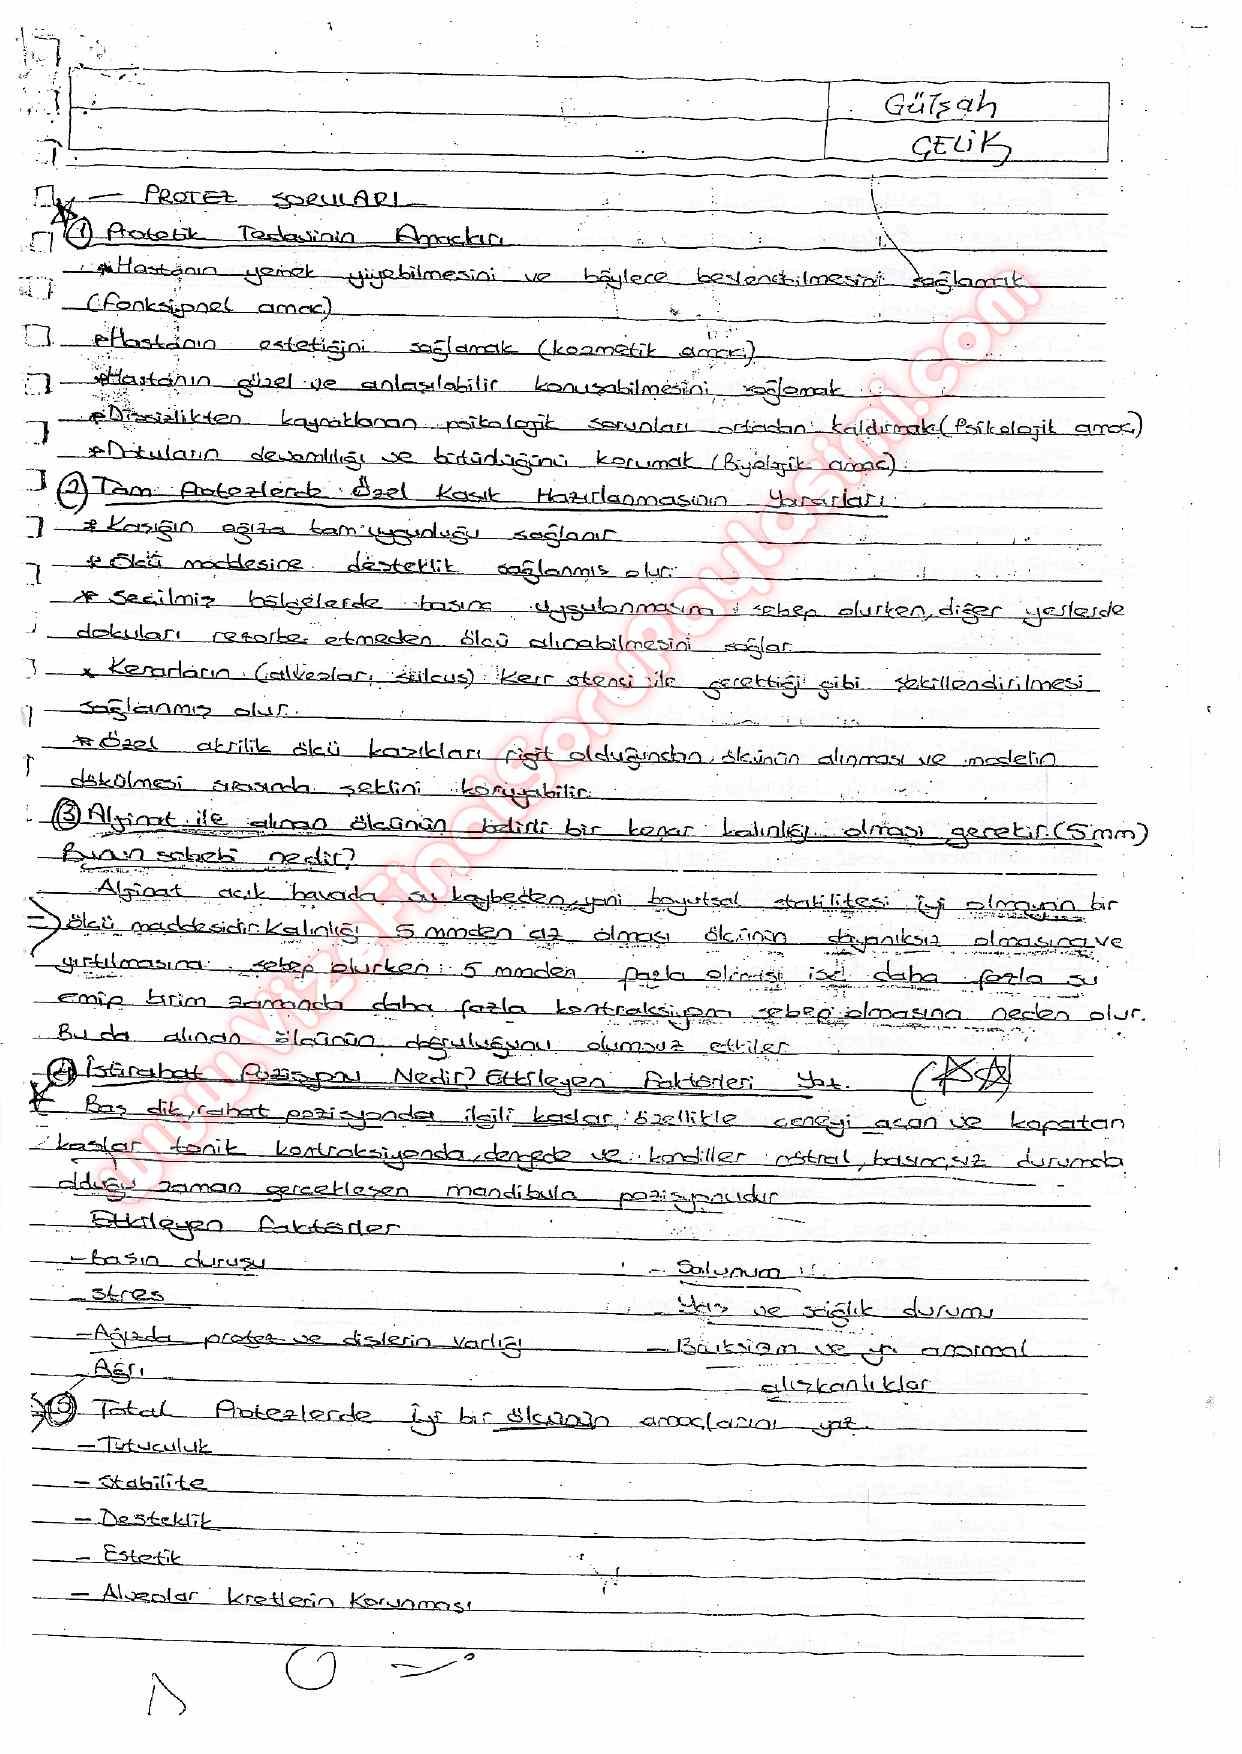 Gülşah
ÇELİK
— PROTEZ SORULARI
① Protetik Tedavinin Amaçları
* Hastanın yemek yiyebilmesini ve böylece beslenebilmesini sağlamak
(Fonksiyonel amaç)
* Hastanın estetiğini sağlamak (kozmetik amaç)
* Hastanın güzel ve anlaşılabilir konuşabilmesini sağlamak
* Dissizlikten kaynaklanan psikolojik sorunları ortadan kaldırmak (Psikolojik amaç)
* Dokuların devamlılığı ve bütünlüğünü korumak (Biyolojik amaç)
② Tam Protezlerde Özel Kaşık Hazırlanmasının Yararları
* Kaşığın ağıza tam uygunluğu sağlanır
* Ölçü maddesine desteklik sağlanmış olur.
* Seçilmiş bölgelerde basınç uygulanmasına sebep olurken, diğer yerlerde
dokuları rezorbe etmeden ölçü alınabilmesini sağlar
* Kenarların (alveolar sulcus) Kerr stenci ile gerektiği gibi şekillendirilmesi
sağlanmış olur.
* Özel akrilik ölçü kaşıkları rijit olduğundan, ölçünün alınması ve modelin
dökülmesi sırasında şeklini koruyabilir.
③ Alginat ile alınan ölçünün belirli bir kenar kalınlığı olması gerekir. (5mm)
Bunun sebebi nedir?
Alginat açık havada su kaybeden, yani boyutsal stabilitesi iyi olmayan bir
=> ölçü maddesidir. Kalınlığı 5 mmden az olması ölçünün dayanıksız olmasına ve
yırtılmasına sebep olurken 5 mmden fazla olması ise daha fazla su
emip birim zamanda daha fazla kontraksiyona sebep olmasına neden olur.
Bu da alınan ölçünün doğruluğunu olumsuz etkiler
④ İstirahat Pozisyonu Nedir? Etkileyen Faktörleri Yaz. (☆☆)
Baş dik, rahat pozisyonda ilgili kaslar, özellikle çeneyi açan ve kapatan
kaslar tonik kontraksiyonda, dengede ve kondiller nötral, basınçsız durumda
olduğu zaman gerçekleşen mandibula pozisyonudur
Etkileyen Faktörler
- basın durusu
- Solunum
- stres
- Yaş ve sağlık durumu
- Ağızda protez ve dişlerin varlığı
- Bruksizm ve anormal
alışkanlıklar
- Ağrı
⑤ Total Protezlerde iyi bir ölçünün amaçlarını yaz.
- Tutuculuk
- Stabilite
- Desteklik
- Estetik
- Alveolar kretlerin Korunması
www.vizeFinalSoruPaylasimi.com